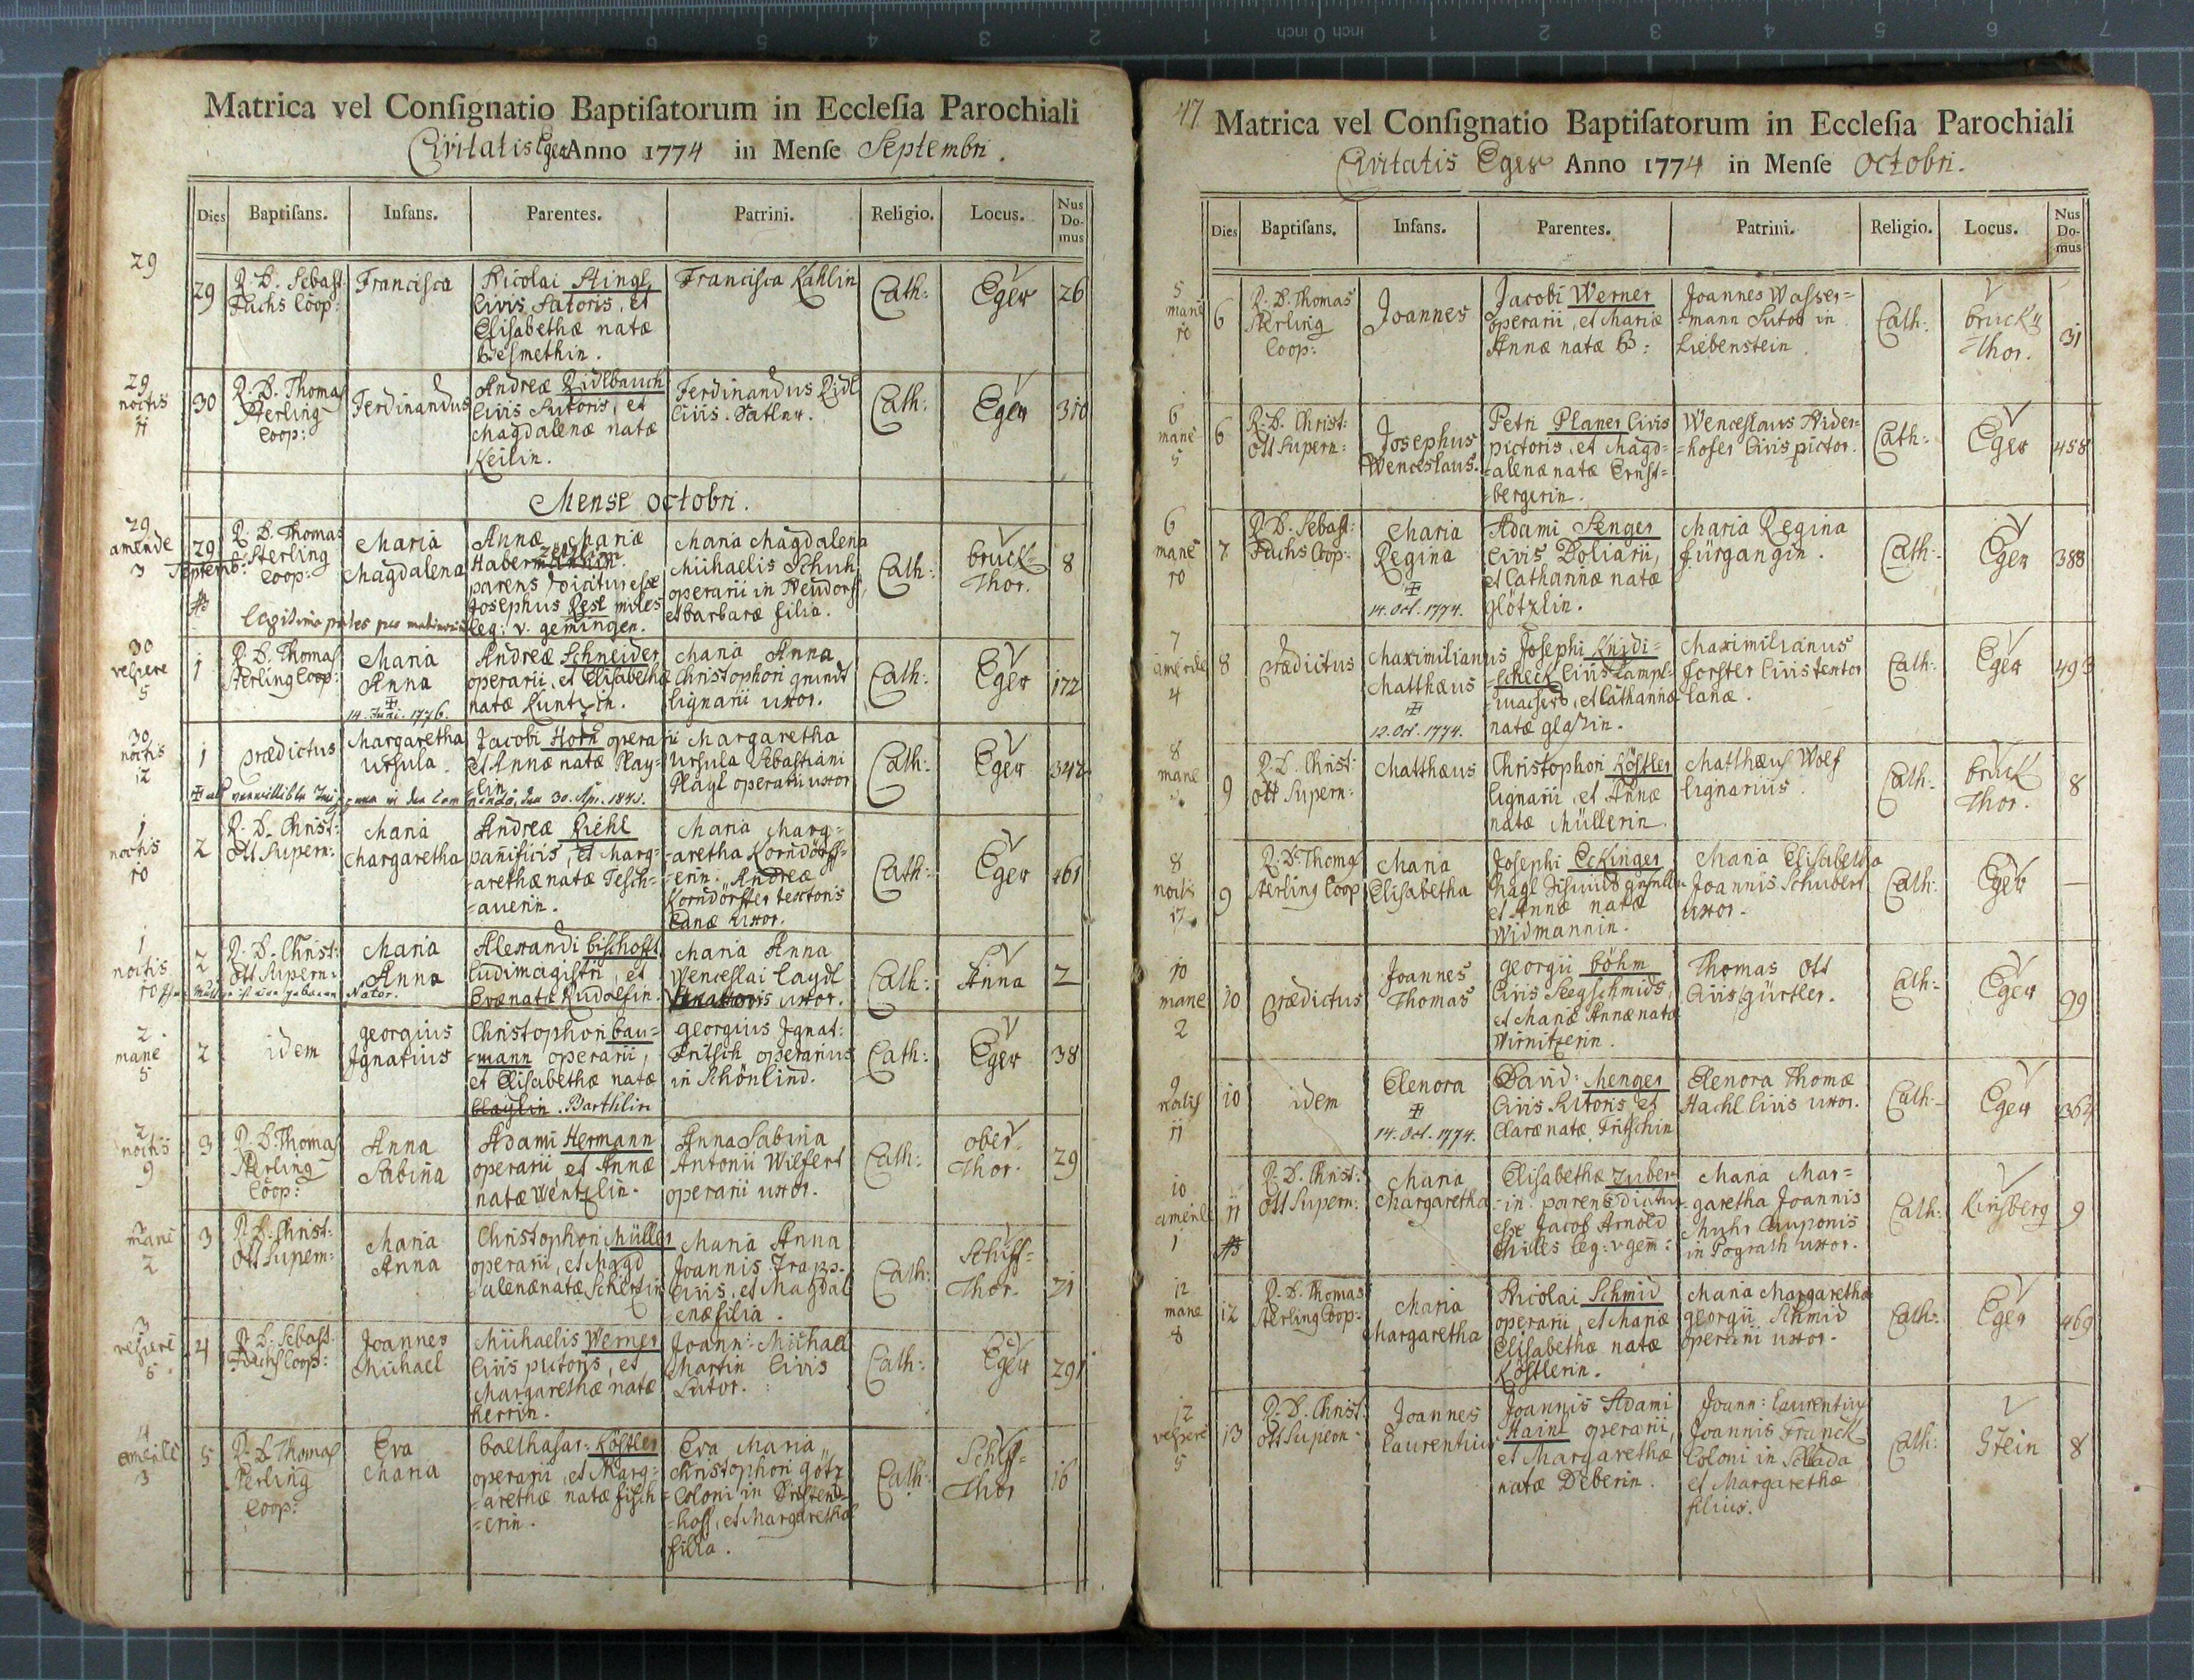 Matrica vel Conſignatio Baptiſatorum in Eccleſia Parochiali
Civitatis Eger Anno 1774 in Menſe Septembri.
Dies Baptiſans. Infans. Parentes. Patrini. Religio. Locus. Nus Do- mus
29
29 R. D. Sebast: Fuchs Coop: Francisca
Nicolai Stingl,
Civis Satoris, et
Elisabethæ natæ
Francisca Kahlin Cath: Eger 26
29
noctis
11
30 R. D. Thomas Sterling Coop: Ferdinandus
Andreæ Ridlbauch
Civis Sutoris, et
Magdalenæ natæ
Keilin.
Ferdinandus Ridl
Civis. Satler.
Cath: Eger 310
Mense Octobri.
29
3
29 Septemb: R. D. Thomas Sterling Coop: Maria Magdalena
Annæ Mariæ
parens dicitur esse
Josephus miles
leg: v. gemingen.
Maria Magdalena
Michaelis Schuh
operarii in
et barbaræ filia.
Cath: bruck- Thor. 8
30
vespere
5
1 R. D. Thomas Sterling Coop: Maria Anna
14. Juni. 1776.
Andreæ Schneider
operarii, et Elisabethæ
natæ Kuntzin.
Maria Anna
Christophori grundt
lignarii uxor.
Cath: Eger 172
30
noctis
12
1 prædictus Margaretha Ursula.
Jacobi Horn operarii
et Annæ natæ Play-
lin
Margaretha
Ursula Sebastiani
Plagl operarii uxor
Cath: Eger 342
den 30. Apr. 1845.
1
noctis
10
2 R. D. Christ: Ott Supern: Maria Margaretha
Andreæ Riehl
panificis, et Marg-
-arethæ natæ Tesch-
-auerin.
Maria Marg-
-aretha Korndörff-
-erin. Andreæ
Korndörffer textoris
lanæ uxor.
Cath: Eger 461
1
noctis
10
2 R. D. Christ: Ott Supern: Maria Anna
Alexandi bischoff
ludimagistri, et
Evæ natæ Rudolfin.
Maria Anna
Wenceslai
uxor.
Cath: Anna 2
2
mane
5
2 idem Georgius Ignatius
Christophori bau-
-mann operarii,
et Elisabethæ natæ
Barthlin
Georgius Ignat:
Fritsch operarius
in Schönlind.
Cath: Eger 38
2
noctis
9
3 R. D. Thomas Sterling Coop: Anna Sabina
Adami Hermann
operarii et Annæ
natæ Wentzlin.
Anna Sabina
Antonii Wilfert
operarii uxor.
Cath: ober- Thor. 29
3
mane
2
3 R. D. Christ: Ott Supern: Maria Anna
Christophori Müller
operarii, et Magd
-alenæ natæ
Maria Anna
Joannis
Civis, et Magdal
-enæ filia.
Cath: Schiff- Thor. 21
3
vespere
5
4 R. D. Sebast. Fuchs Coop: Joannes Michael
Michaelis Werner
Civis pictoris, et
Margarethæ natæ
Herrin.
Joann: Michael
Martin Civis
Sutor.
Cath: Eger 291
4
3
5 R. D. Thomas Sterling Coop: Eva Maria
balthasar: Köstler
operarii, et Marg-
-arethæ natæ fisch-
-erin.
Eva Maria
Christophori Götz
Coloni in
-hoff, et Margarethæ
filia.
Cath: Schiff- Thor 16
47
Matrica vel Conſignatio Baptiſatorum in Eccleſia Parochiali
Civitatis Eger Anno 1774 in Menſe Octobri.
Dies Baptiſans. Infans. Parentes. Patrini. Religio. Locus. Nus Do- mus
5
mane
10
6 R. D. Thomas Sterling Coop: Joannes
Jacobi Werner
operarii, et Mariæ
Annæ natæ
Joannes Wasser-
-mann Sutor in
Liebenstein.
Cath: bruck Thor. 31
6
mane
5
6 R. D. Christ: Ott Supern: Josephus Wenceslaus.
Petri Planer Civis
pictoris, et Magd-
-alenæ natæ Ernst-
-bergerin.
Wenceslaus Nider-
-hofer Civis pictor.
Cath: Eger 458
6
mane
10
7 R. D. Sebast: Fuchs Coop: Maria Regina
14. Oct. 1774.
Adami Senger
Civis Doliarii,
et Catharinæ natæ
Glötzlin.
Maria Regina
fürgangin.
Cath: Eger 388
7
4
8 prædictus Maximilianus Matthæus
12. Oct. 1774.
Josephi
natæ
Maximilianus
forster Civis textor
lanæ.
Cath: Eger 493
8
mane
9 R. D. Christ: Ott Supern: Matthæus
Christophori Köstler
lignarii, et Annæ
natæ Müllerin
Matthæus Wolf
lignarius.
Cath: bruck Thor. 8
8
noctis
12
9 R. D. Thomas Sterling Coop Maria Elisabetha
Josephi Eckinger
et Annæ natæ
Widmannin.
Maria Elisabetha
Joannis Schubert
uxor.
Cath: Eger —
10
mane
2
10 prædictus Joannes Thomas
Georgii böhm
Civis
et Mariæ Annæ natæ
Wirnitzerin.
Thomas Ott
Civis gürtler.
Cath: Eger 99
9
noctis
11
10 idem Elenora
14. Oct. 1774.
David: Menger
Civis Sutoris et
Claræ natæ Fritschin
Elenora Thomæ
Hachl Civis uxor.
Cath: Eger 364
10
1
11 R. D. Christ: Ott Supern: Maria Margaretha
Elisabethæ Huber-
-in. parens dicitur
esse Jacob Arnold
Miles leg: v gem:
Maria Mar-
-garetha Joannis
Muhr Cauponis
in Pograth uxor.
Cath: Kinsberg 9
12
mane
8
12 R. D. Thomas Sterling Coop: Maria Margaretha
Nicolai Schmid
operarii, et Mariæ
Elisabethæ natæ
Köstlerin.
Maria Margaretha
Georgii Schmid
operarii uxor.
Cath: Eger 469
12
vespere
5
13 R. D. Christ: Ott Supern: Joannes Laurentius
Joannis Adami
Hainl operarii,
et Margarethæ
natæ Deberin.
Joann: Laurentius
Joannis Franck
Coloni in Schlada
et Margarethæ
filius.
Cath: Stein 8